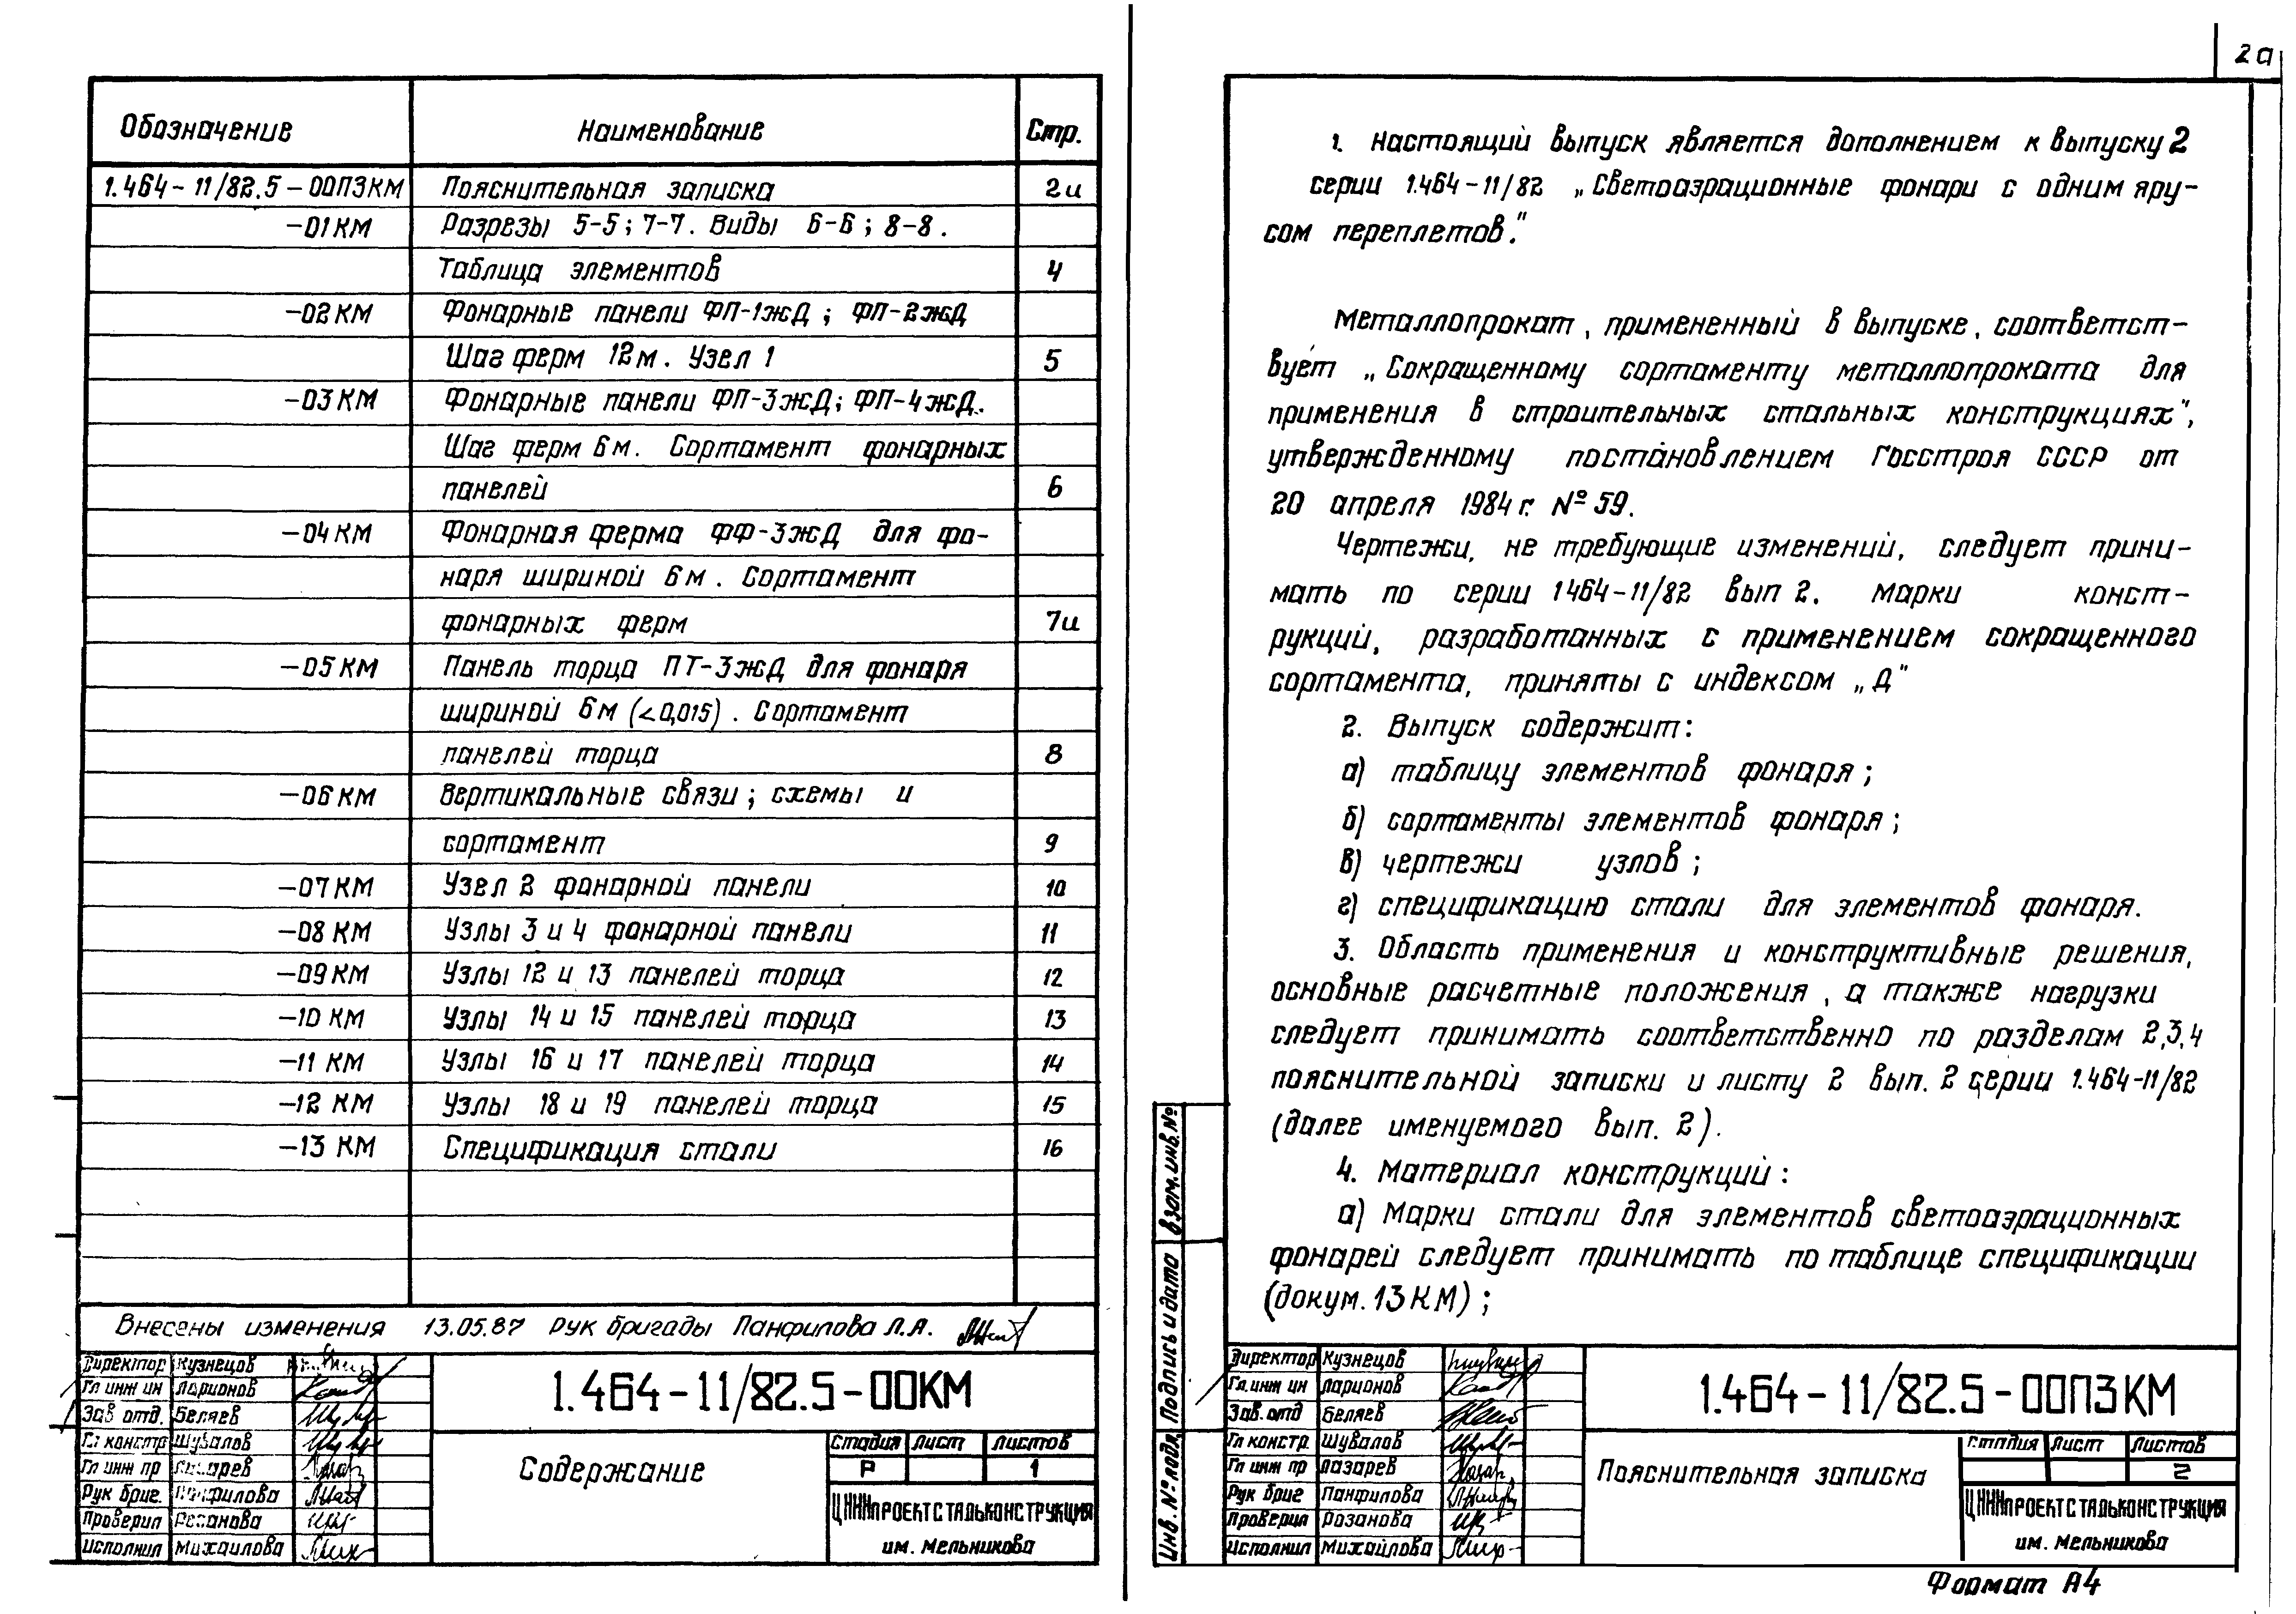 Обозначение Наименование Стр.
1.464-11/82.5-00ПЗКМ Пояснительная записка 2и
-01КМ Разрезы 5-5; 7-7. Виды 6-6; 8-8.
Таблица элементов 4
-02КМ Фонарные панели ФП-1жД; ФП-2жД
Шаг ферм 12м. Узел 1 5
-03КМ Фонарные панели ФП-3жД; ФП-4жД.
Шаг ферм 6м. Сортамент фонарных
панелей 6
-04КМ Фонарная ферма ФФ-3жД для фо-
наря шириной 6м. Сортамент
фонарных ферм 7и
-05КМ Панель торца ПТ-3жД для фонаря
шириной 6м (<0,015). Сортамент
панелей торца 8
-06КМ Вертикальные связи; схемы и
сортамент 9
-07КМ Узел 2 фонарной панели 10
-08КМ Узлы 3 и 4 фонарной панели 11
-09КМ Узлы 12 и 13 панелей торца 12
-10 КМ Узлы 14 и 15 панелей торца 13
-11 КМ Узлы 16 и 17 панелей торца 14
-12 КМ Узлы 18 и 19 панелей торца 15
-13 КМ Спецификация стали 16
Внесены изменения 13.05.87 рук бригады Панфилова Л.А.
Директор Кузнецов
Гл инж ин Ларионов
Зав отд. Беляев
Гл констр Шувалов
Гл инж пр Лазарев
Рук бриг. Панфилова
Проверил Розанова
Исполнил Михайлова
1.464-11/82.5-00КМ
Содержание
Стадия Лист Листов
Р 1
ЦНИИПРОЕКТСТАЛЬКОНСТРУКЦИЯ
им. Мельникова
2а
1. Настоящий выпуск является дополнением к выпуску 2
серии 1.464-11/82 „Светоаэрационные фонари с одним яру-
сом переплетов."
Металлопрокат, примененный в выпуске, соответст-
вует „Сокращенному сортаменту металлопроката для
применения в строительных стальных конструкциях",
утвержденному постановлением Госстроя СССР от
20 апреля 1984г. № 59.
Чертежи, не требующие изменений, следует прини-
мать по серии 1464-11/82 вып 2. Марки конст-
рукций, разработанных с применением сокращенного
сортамента, приняты с индексом „Д"
2. Выпуск содержит:
а) таблицу элементов фонаря;
б) сортаменты элементов фонаря;
в) чертежи узлов;
г) спецификацию стали для элементов фонаря.
3. Область применения и конструктивные решения,
основные расчетные положения, а также нагрузки
следует принимать соответственно по разделам 2,3,4
пояснительной записки и листу 2 вып. 2 серии 1.464-11/82
(далее именуемого вып. 2).
4. Материал конструкций:
а) Марки стали для элементов светоаэрационных
фонарей следует принимать по таблице спецификации
(докум. 13КМ);
Взам.инв.№
Подпись и дата
Инв.№подл.
Директор Кузнецов
Гл.инж ин Ларионов
Зав.отд Беляев
Гл констр. Шувалов
Гл инж пр Лазарев
Рук бриг Панфилова
Проверил Розанова
Исполнил Михайлова
1.464-11/82.5-00ПЗКМ
Пояснительная записка
Стадия Лист Листов
2
ЦНИИПРОЕКТСТАЛЬКОНСТРУКЦИЯ
им. Мельникова
Формат А4